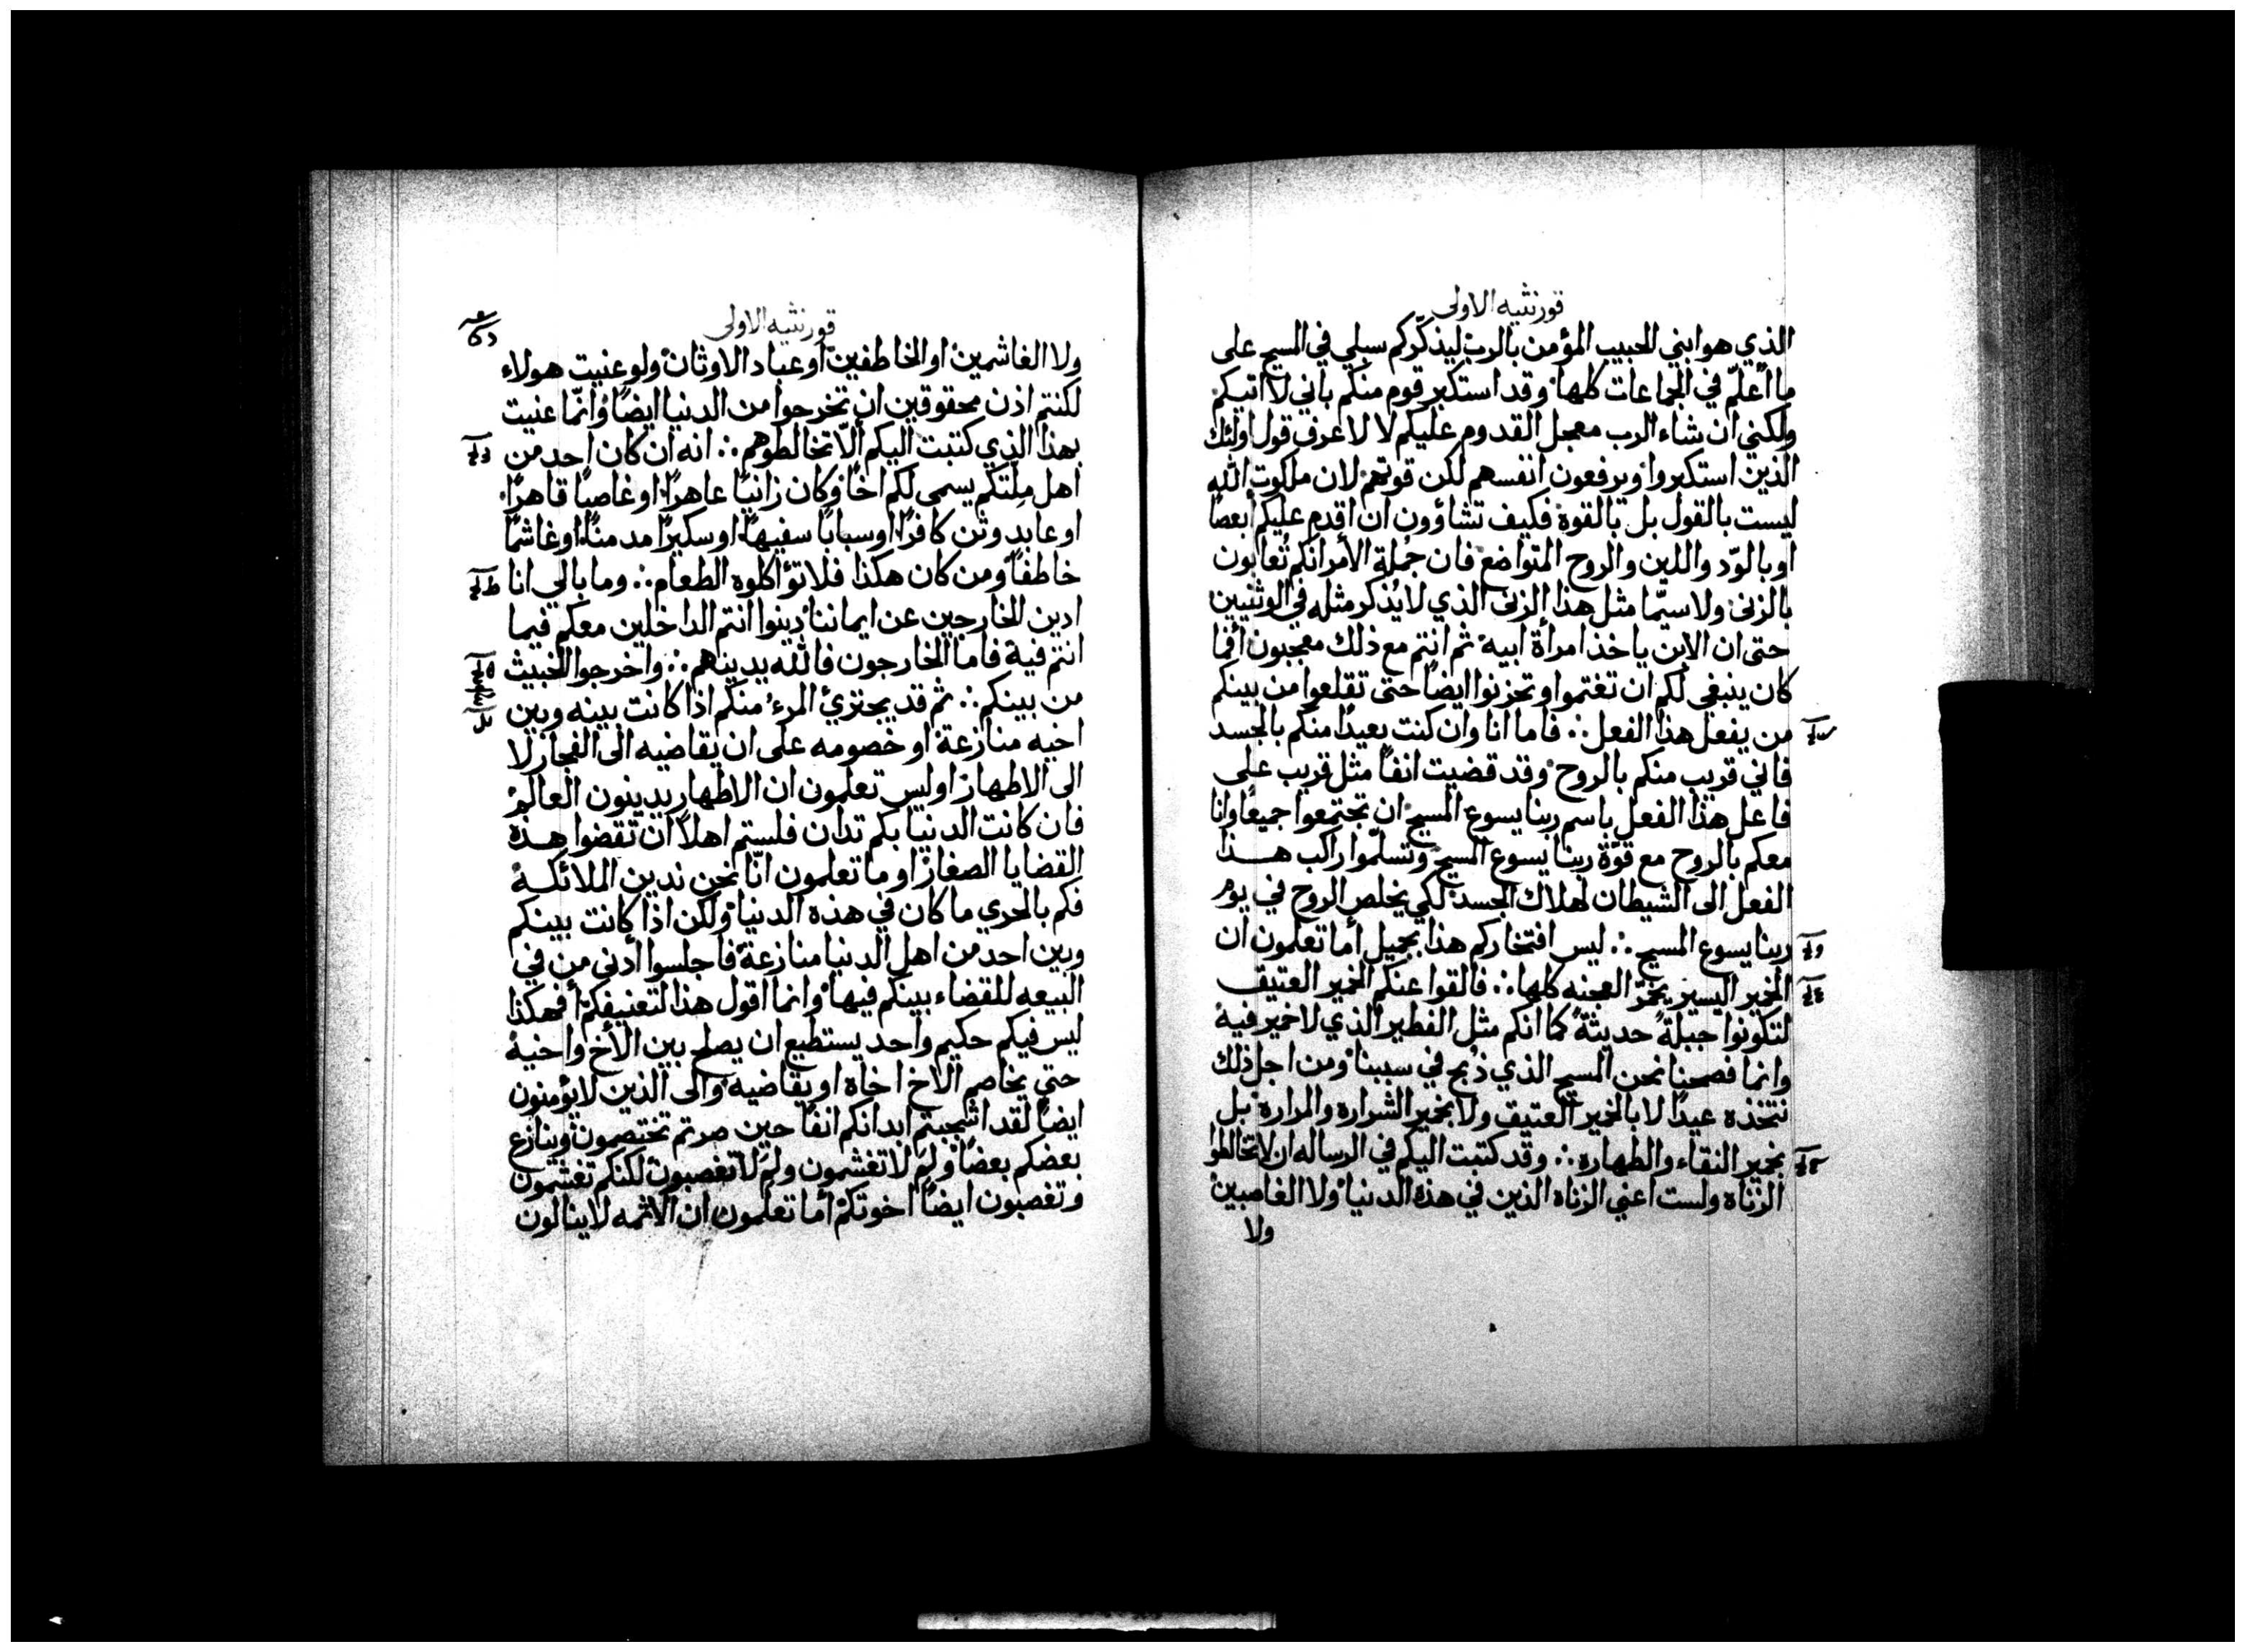 قورنثيه الاولى
الذي هو ابني الحبيب المؤمن بالرب ليذكّركم سبلي في المسيح على
ما اعلّم في الجماعات كلها وقد استكبر قوم منكم باني لا اتيكم
ولكني ان شاء الرب معجل القدوم عليكم لا لاعرف قول اولئك
الذين استكبروا ويرفعون انفسهم لكن قوتهم لان ملكوت الله
ليست بالقول بل بالقوة فكيف تشاؤون ان اقدم عليكم أبعصًا
او بالودّ واللين والروح المتواضع فان جُملة الأمر انكم تُعابون
بالزنى ولا سيّما مثل هذا الزنى الذي لا يُذكر مثله في الوثنيين
حتى ان الابن ياخذ امرأة ابيه ثم انتم مع ذلك معجبون أفما
كان ينبغي لكم ان تغتموا وتحزنوا ايضًا حتى تقلعوا من بينكم
من يفعل هذا الفعل ∴ فاما انا وان كنت بعيدًا منكم بالجسد
فاني قريب منكم بالروح وقد قضيت انفًا مثل قريب على
فاعل هذا الفعل باسم ربنا يسوع المسيح ان تجتمعوا جميعًا وانا
معكم بالروح مع قوّة ربنا يسوع المسيح وتسلّموا راكب هـذا
الفعل الى الشيطان لهلاك الجسد لكي يخلص الروح في يوم
ربنا يسوع المسيح ∴ ليس افتخاركم هذا بجميل أما تعلمون ان
الخمير اليسير يخمّر العجنه كلها ∴ فالقوا عنكم الخمير العتيق
لتكونوا جبلةً حديثةً كما انكم مثل الفطير الذي لا خمير فيه
وانما فصحنا نحن المسيح الذي ذُبح في سببنا ومن اجل ذلك
نتخذه عيدًا لا بالخمير العتيق ولا بخمير الشراره والمراره بل
بخمير النقاء والطهاره ∴ وقد كتبت اليكم في الرساله ان لا تخالطوا
الزناه ولست اعني الزناه الذين في هذه الدنيا ولا الغاصبين
ولا
قورنثيه الاولى
ولا الغاشمين او الخاطفين أو عباد الاوثان ولو عنيت هولاء
لكنتم اذن محقوقين ان تخرجوا من الدنيا ايضًا وانّما عنيت
بهذا الذي كتبت اليكم ألّا تخالطوهم ∴ انه ان كان احد من
اهل مِلّتكم يسمى لكم اخًا وكان زانيًا عاهرًا او غاصبًا قاهرًا
او عابد وثن كافرًا او سبابًا سفيهًا او سكيرًا مدمنًا او غاشمًا
خاطفًا ومن كان هكذا فلا تؤاكلوه الطعام ∴ وما بالي انا
ادين الخارجين عن ايماننا دينوا انتم الداخلين معكم فيما
انتم فيه فاما الخارجون فالله يدينهم ∴ واخرجوا الخبيث
من بينكم ∴ ثم قد يجتزئ المرء منكم اذا كانت بينه وبين
اخيه منازعة او خصومه على ان يقاضيه الى الفجار لا
الى الاطهار اوليس تعلمون ان الاطهار يدينون العالم
فان كانت الدنيا بكم تدان فلستم اهلًا ان تقضوا هـذه
القضايا الصغار او ما تعلمون انّا نحن ندين الملائكـة
فكم بالحري ما كان في هذه الدنيا ولكن اذا كانت بينكم
وبين احد من اهل الدنيا منازعة فاجلسوا أدنى من في
البيعه للقضاء بينكم فيها وانما اقول هذا لتعنيفكم أفهكذا
ليس فيكم حكيم واحد يستطيع ان يصلح بين الأخ واخيه
حتى يخاصم الاخ اخاه او يقاضيه والى الذين لا يؤمنون
ايضًا لقد اشجبتم ابدانكم انفًا حين صرتم تختصمون وينازع
بعضكم بعضًا ولِمَ لا تغشمون ولِمَ لا تغصبون لكنكم تغشمون
وتغصبون ايضًا اخوتكم أما تعلمون ان الأثمه لا ينالون